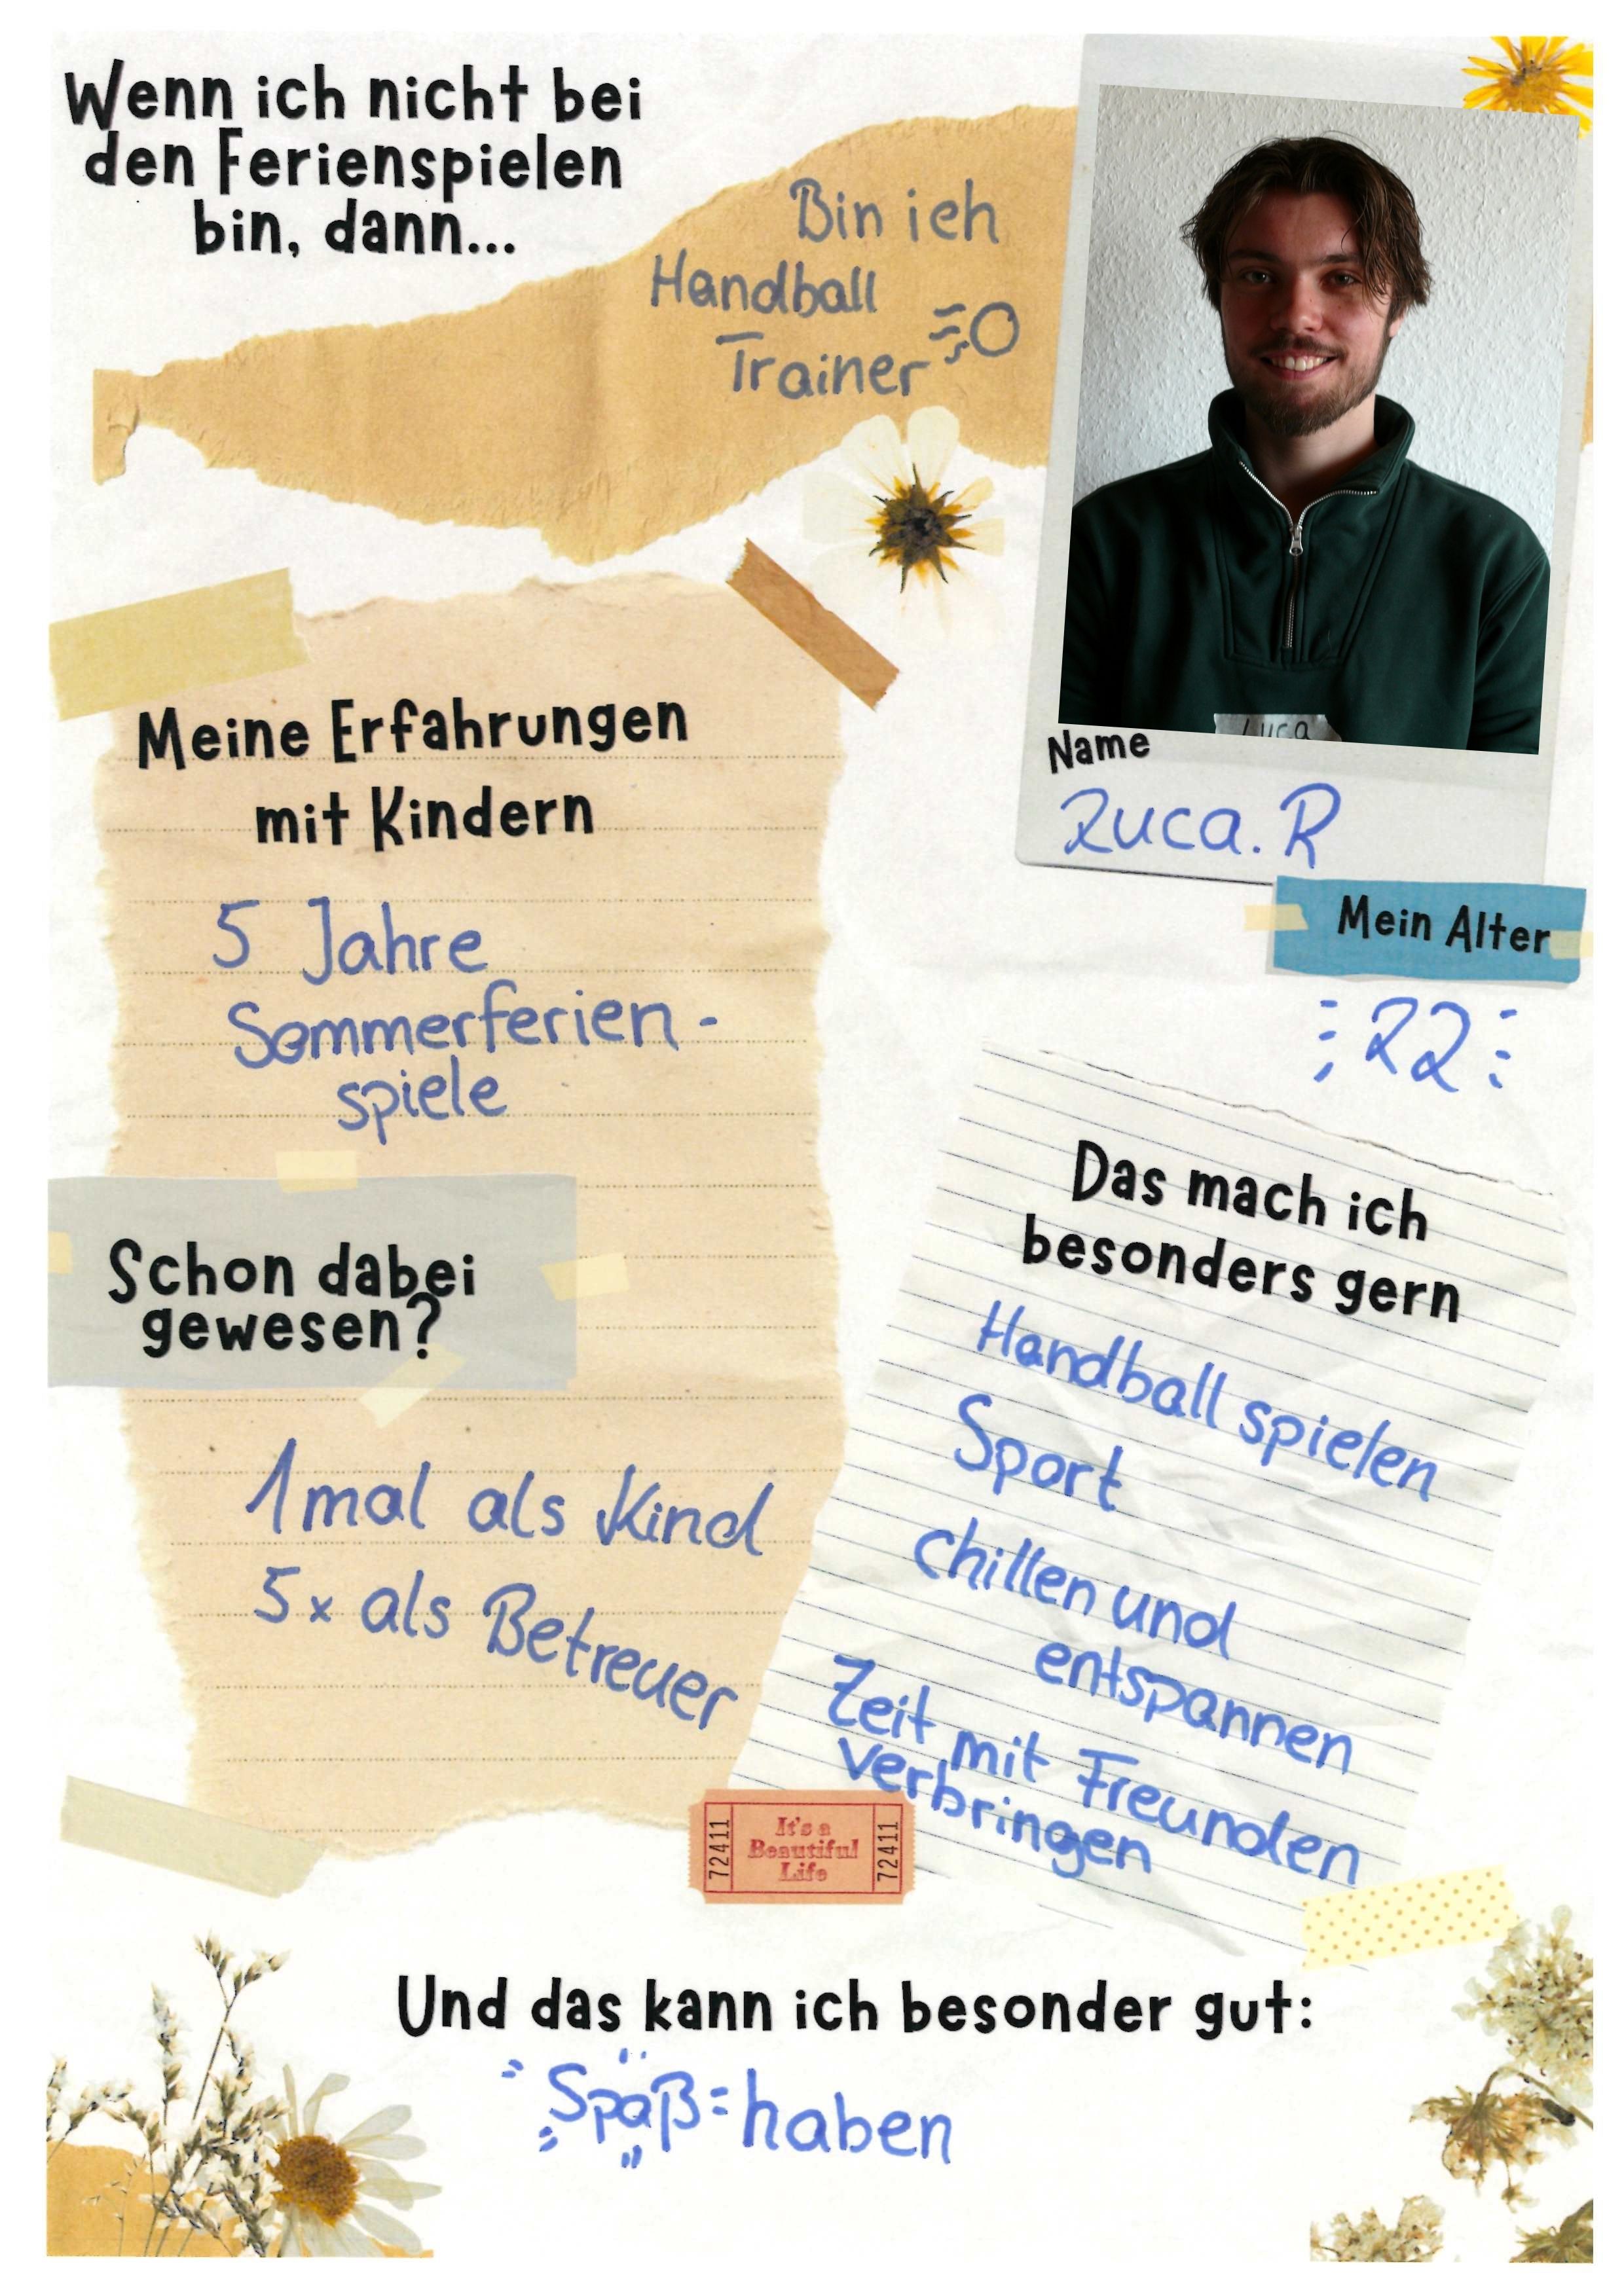 Wenn ich nicht bei
den Ferienspielen
bin, dann...
Bin ich
Handball
Trainer
Luca
Name
Luca. R
Mein Alter
22
Meine Erfahrungen
mit Kindern
5 Jahre
Sommerferien-
spiele
Schon dabei
gewesen?
1mal als Kind
5x als Betreuer
Das mach ich
besonders gern
Handball spielen
Sport
chillen und
entspannen
Zeit mit Freunden
verbringen
72411
It's a
Beautiful
Life
72411
Und das kann ich besonder gut:
Spaß haben